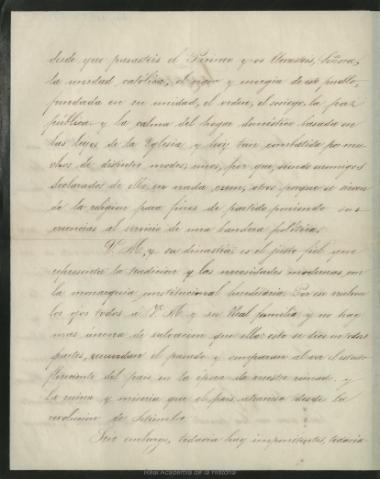 desde que pasasteis el Pirineo y os llevasteis, Señora,
la unidad católica, el vigor y energia de este pueblo,
fundada en su unidad, el orden, el sosiego, la paz
pública y la calma del hogar doméstico basada en
las leyes de la Iglesia y hoy tan combatida por mu-
chos de distintos modos; unos, por que siendo enemigos
declarados de ella, en nada creen; otros porque se sirven
de la religion para fines de partido poniendo sus
creencias al servicio de una bandera política.
V. M. y su dinastia es el justo fiel que
representa la tradicion y las necesidades modernas con
la monarquia constitucional hereditaria. Por eso vuelven
los ojos todos á V. M. y su Real familia y no hay
mas áncora de salvacion que ella: esto se dice en todas
partes, recuerdan el pasado y comparan al ver el estado
floreciente del pais en la época de vuestro reinado y
la ruina y miseria que el pais atraviesa desde la
revolucion de Setiembre.
Sin embargo, todavia hay impenitentes, todavia
Real Academia de la Historia